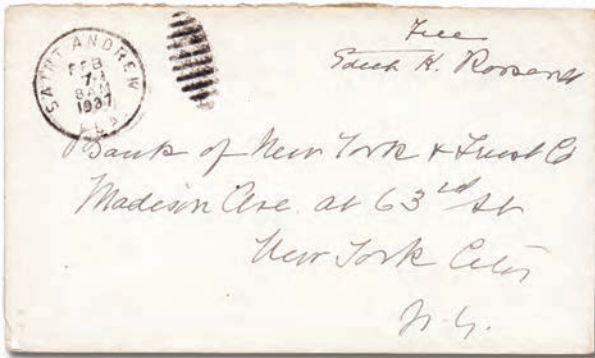 SAINT ANDREW
FEB
7
8 AM
1937
FLA.
Free
Edith K. Roosevelt
Bank of New York & Trust Co
Madison Ave. at 63rd St
New York City
N.Y.